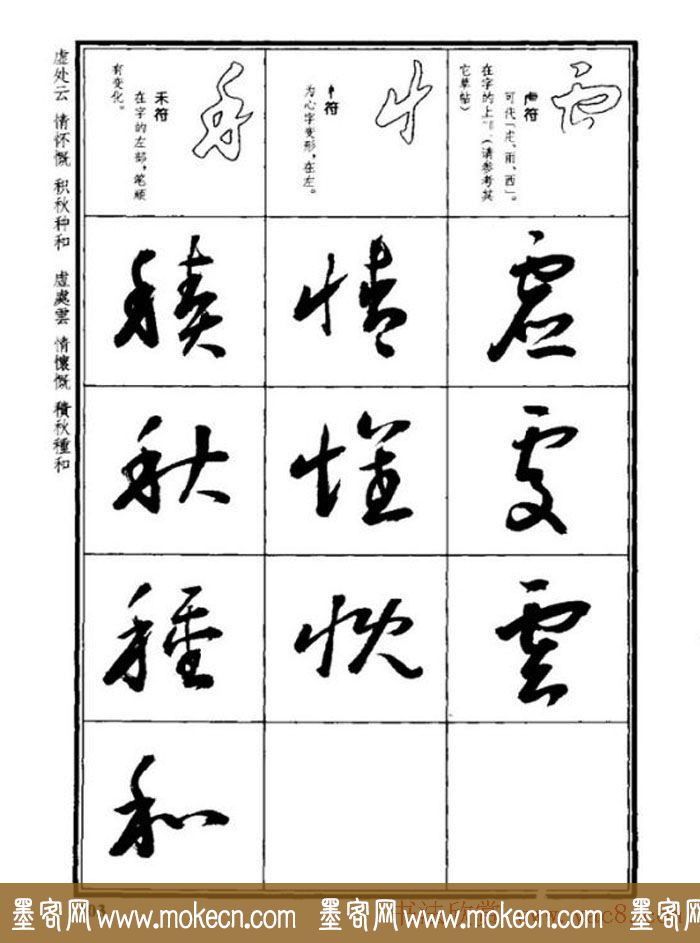 虍符
可代「虍、雨、西」。
在字的上部。（请参考其
它草帖）
虚
處
雲
忄符
为心字变形，在左。
情
懷
慨
禾符
在字的左部，笔顺
有变化。
積
秋
種
和
虚处云 情怀慨 积秋种和 虚處雲 情懷慨 積秋種和
墨客网 www.mokecn.com 墨客网 www.mokecn.com 墨客网
书法欣赏